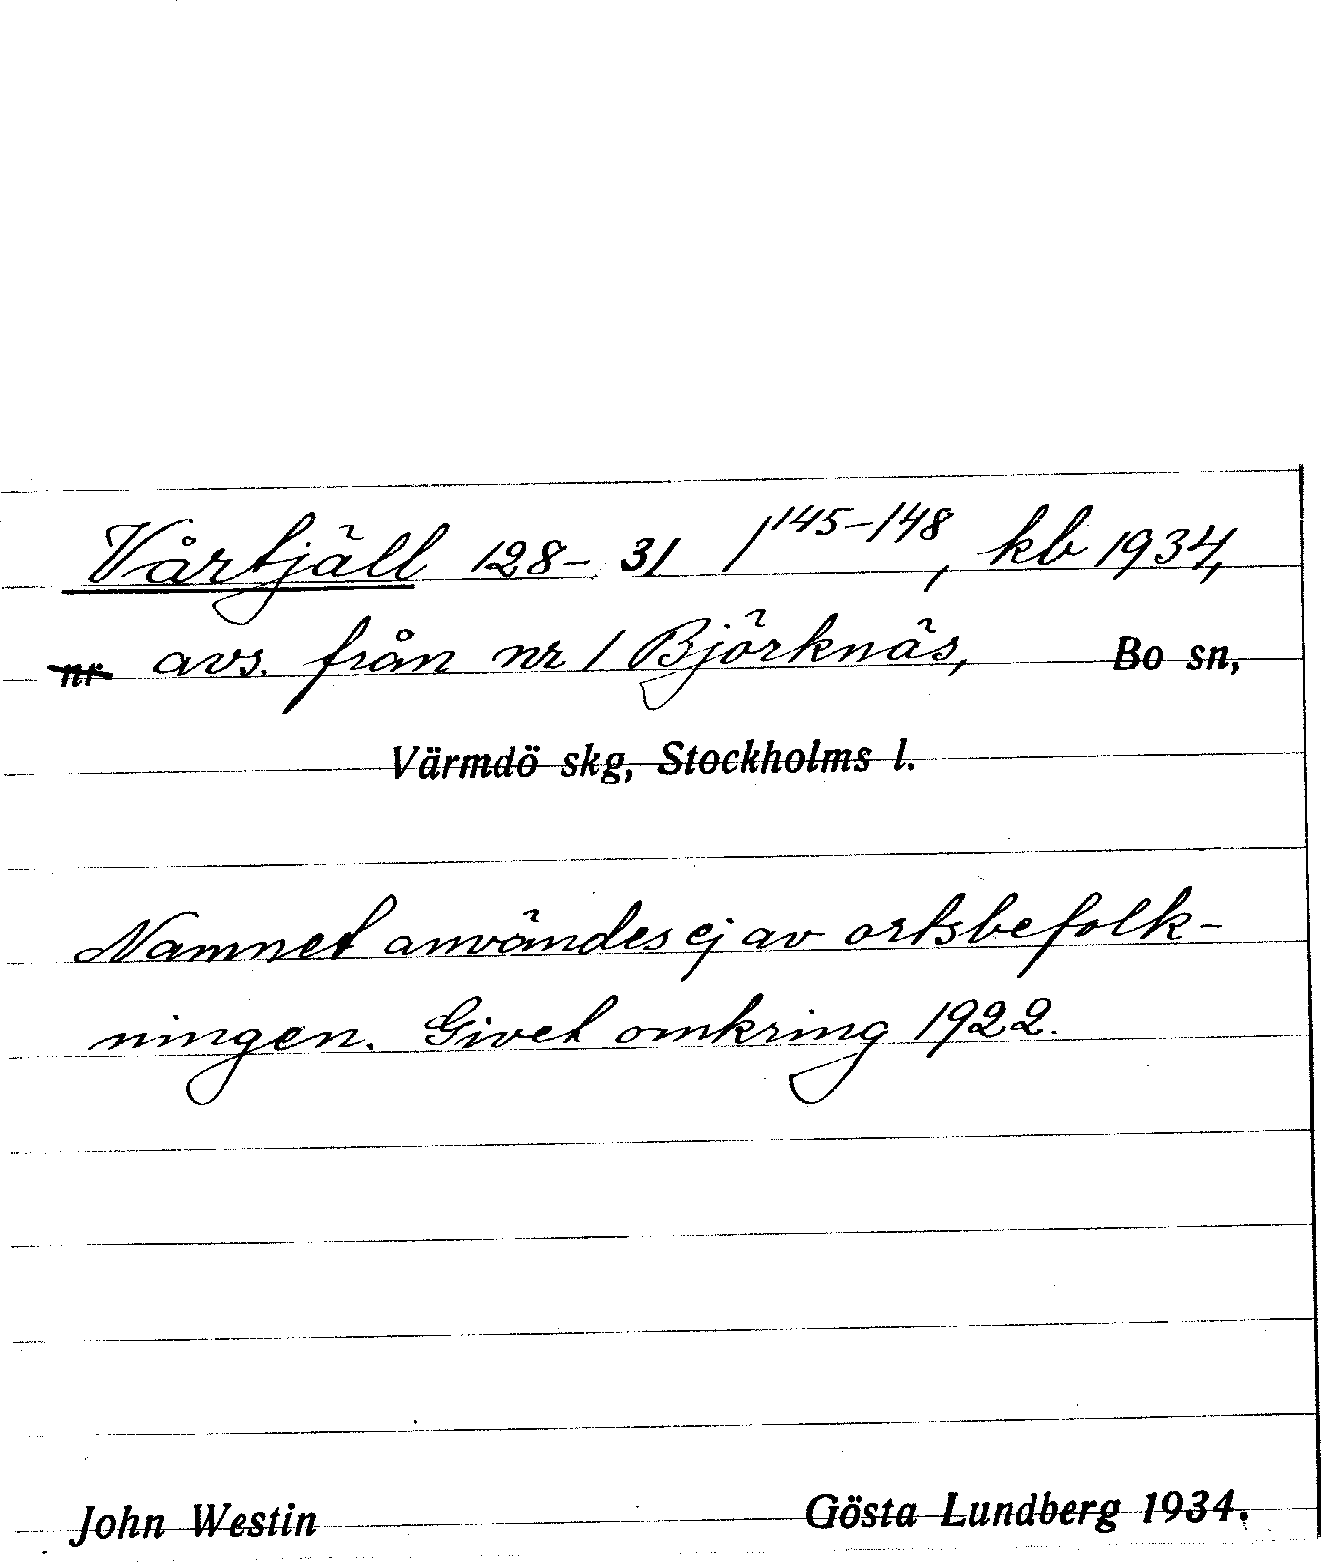 Vårtjäll 128-31 1 145-148, kb 1934,
nr avs. från nr 1 Björknäs, Bo sn,
Värmdö skg, Stockholms l.
Namnet användes ej av ortsbefolk-
ningen. Givet omkring 1922.
John Westin Gösta Lundberg 1934.